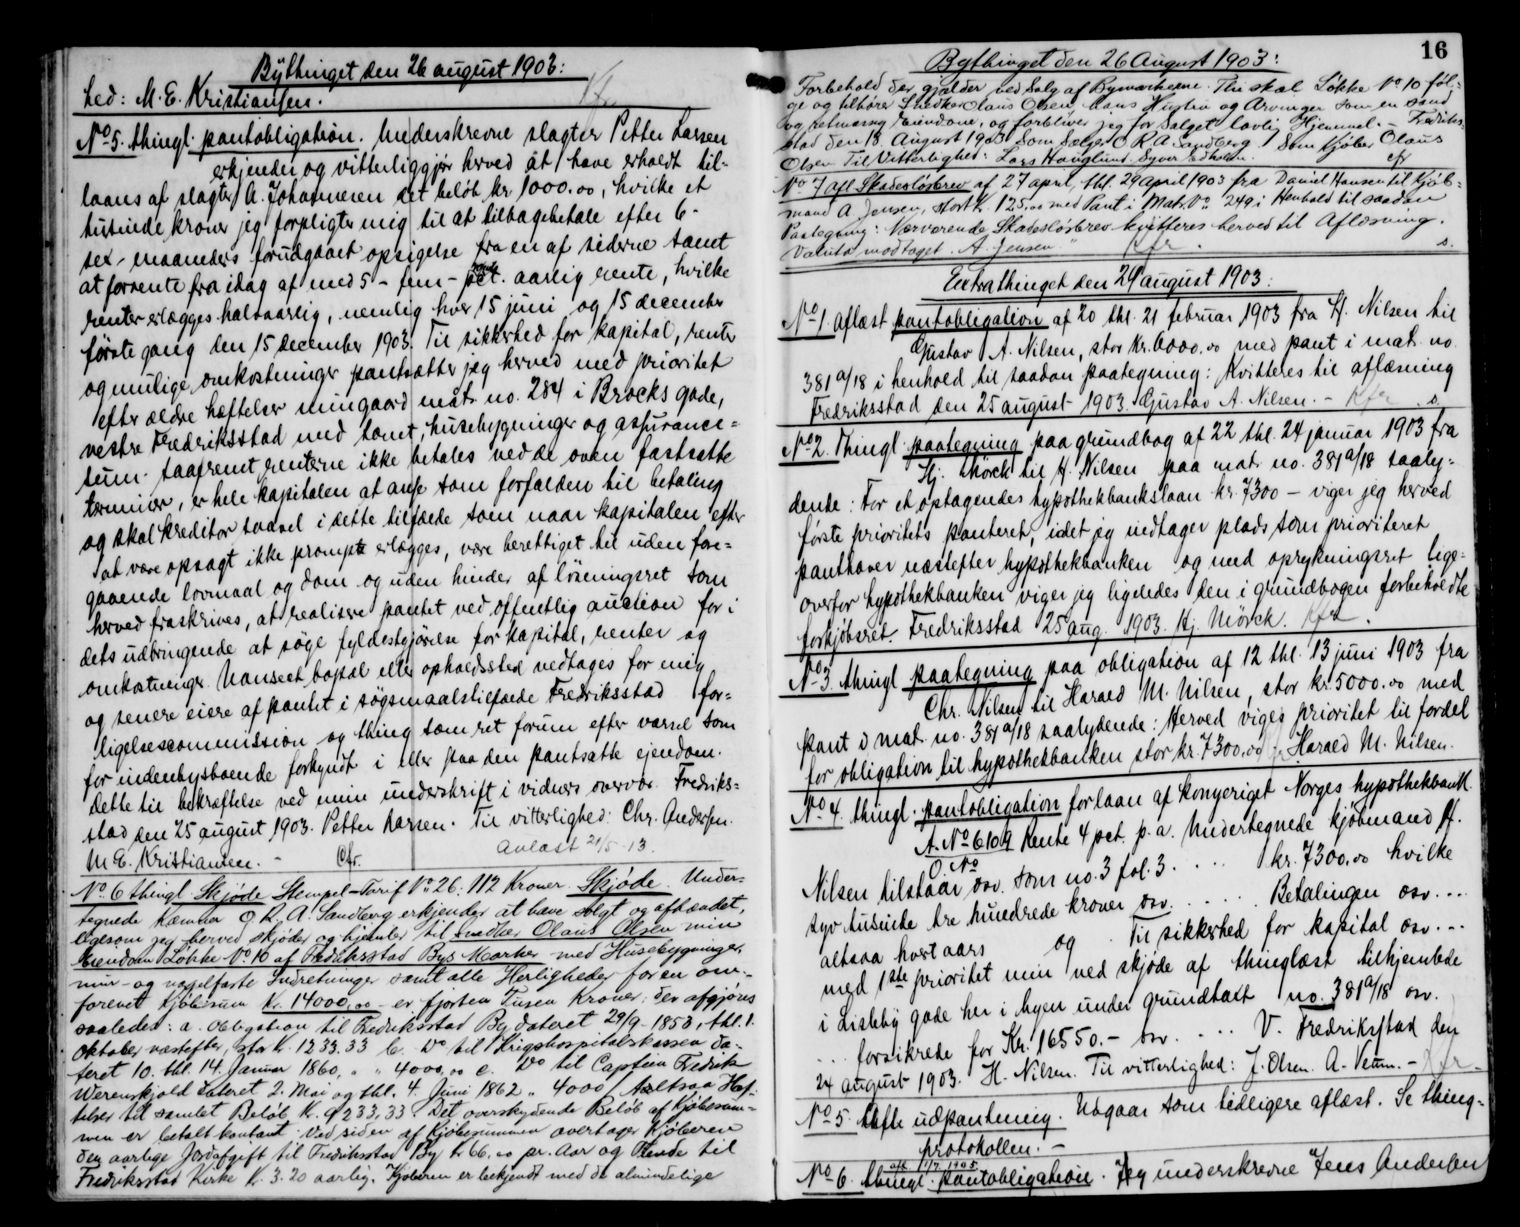 Bythinget den 26 august 1903:
hed: M. E. Kristiansen. Kfr.
No 5. thingl. pantobligation. Underskrevne slagter Petter Larsen
erkjender og vitterliggjør herved at have erholdt til-
laans af slagter A. Johannesen det beløb kr. 1000.00, hvilke et
tusinde kroner jeg forpligter mig til at tilbagebetale efter 6-
sex- maaneders forudgaaet opsigelse fra en af siderne samt
at forrente fra idag af med 5- fem- pct. aarlig rente, hvilke
renter erlægges halvaarlig, nemlig hver 15 juni og 15 december
første gang den 15 december 1903. Til sikkerhed for kapital, renter
og mulige omkostninger pantsætter jeg herved med prioritet
efter ældre hæftelser min gaard mat. no. 284 i Brocks gade,
vestre Fredriksstad med tomt, husebygninger og assurance-
sum. Saafremt renterne ikke betales ved de oven fastsatte
terminer, er hele kapitalen at anse som forfalden til betaling
og skal kreditor saavel i dette tilfælde som naar kapitalen efter
at være opsagt ikke prompte erlægges, være berettiget til uden fore-
gaaende lovmaal og dom og uden hinder af løsningsret som
herved fraskrives, at realisere pantet ved offentlig auction for i
dets udbringende at søge fyldestgjørelse for kapital, renter og
omkostninger. Uanseet bopæl eller opholdssted vedtages for mig
og senere eiere af pantet i søgsmaalstilfælde Fredriksstad for-
ligelsescommission og thing som ret forum efter varsel som
for indenbysboende forkyndt i eller paa den pantsatte ejendom.
Dette til bekræftelse ved min underskrift i vidners overvær. Fredriks-
stad den 25 august 1903. Petter Larsen. Til vitterlighed: Chr. Andersen.
M. E. Kristiansen. - Cfr. Avlæst 21/5-13.
No 6 thingl. Skjøde Stempel-Tarif No 26: 112 Kroner. Skjøde Under-
tegnede Kæmner O. R. A. Sandberg erkjender at have solgt og afhændet,
ligesom jeg herved skjøder og hjemler til Snedker Olaus Olsen min
Eiendom Løkke No 10 af Fredriksstad Bys Marker med Husebygninger,
mur- og nagelfaste Indretninger samt alle Herligheder for en om-
forenet Kjøbesum Kr. 14000,00 - er fjorten Tusen Kroner, der afgjøres
saaledes: a. Obligation til Fredriksstad By dateret 29/9-1853, thl. 1.
Oktober næstefter, stor K. 1233.33 b. Do til Krigshospitalskassen da-
teret 10. thl. 14. Januar 1860, " " 4000,00 c. Do til Captein Fredrik
Werenskjold dateret 2. Mai og thl. 4. Juni 1862 " 4000 Altsaa Hef-
telser til samlet Beløb K. 9233,33. Det overskydende Beløb af Kjøbesum-
men er betalt kontant. Ved siden af Kjøbesummen overtager Kjøberen
den aarlige Jordafgift til Fredriksstad By Kr 66.00 pr. Aar og Tiende til
Fredriksstad Kirke K. 3.20 aarlig. Kjøberen er bekjendt med de almindelige
16
Bythinget den 26 August 1903:
Forbehold der gjælder ved Salg af Bymarkerne. Thi skal Løkke No 10 føl-
ge og tilhøre Snedker Olaus Olsen, hans Hustru og Arvinger som en sand
og retmæssig Eiendom, og forbliver jeg for Salget lovlig Hjemmel. - Fredriks-
stad den 18. August 1903. Som Sælger O R A Sandberg. Som Kjøber Olaus
Olsen Til Vitterlighed: Lars Hauglund. Syver Edholm. cfr
No 7 afl. Skadesløsbrev af 27 april, thl. 29 april 1903 fra Daniel Hansen til Kjøb-
mand A Jensen, stort K. 125,00 med Pant i Mat. No 249 i Henhold til saadan
Paategning: Nærværende Skadesløsbrev kvitteres herved til Aflæsning.
Valuta modtaget. A. Jensen " Kfr. s.
Extrathinget den 29 august 1903:
No 1. aflæst pantobligation af 20 thl. 21 februar 1903 fra H. Nilsen til
Gustav A. Nilsen, stor kr. 6000.00 med pant i mat. no
381 a/18 i henhold til saadan paategning: Kvitteres til aflæsning
Fredriksstad den 25 august 1903. Gustav A. Nilsen. - Kfr s.
No 2. Thingl. paategning paa grundbog af 22 thl. 24 januar 1903 fra
Hj. Mörck til H. Nilsen paa mat. no. 381 a/18 saaly-
dende: For et optagendes hypothekbankslaan kr. 7300 - viger jeg herved
første prioritets panteret, idet jeg vedtager plads som prioriteret
panthaver næstefter hypothekbanken og med oprykningsret lige-
overfor hypothekbanken viger jeg ligeledes den i grundbogen forbeholdte
forkjøbsret. Fredriksstad 25 aug. 1903. Hj. Mörck. Kfr.
No 3. thingl paategning paa obligation af 12 thl. 13 juni 1903 fra
Chr. Nilsen til Harald M. Nilsen, stor kr. 5000.00 med
pant i mat. no. 381 a/18 saalydende: Herved viges prioritet til fordel
for obligation til hypothekbanken stor kr. 7300.00 Harald M. Nilsen.
No 4. thingl. pantobligation for laan af kongeriget Norges hypothekbank.
A. No 6109 Rente 4 pct. p. a. Undertegnede kjøbmand H.
O. No
Nilsen tilstaar osv. som no. 3 fol. 3. . . . kr. 7300.00 hvilke
syv tusinde tre hundrede kroner osv. . . . . . Betalingen osv. . . .
altsaa hvert aars og Til sikkerhed for kapital osv. . . .
med 1ste prioritet min ved skjøde af thinglæst tilhjemlede
i Lisleby gade her i byen under grundtaxt no. 381 a/18 osv.
. . . forsikrede for Kr. 16550. - osv. . . V. Fredriksstad den
24 august 1903. H. Nilsen. Til vitterlighed: J. Olsen. A. Veum. - Kfr.
No 5. udpantning. Udgaar som tidligere aflæst. Se thing-
protokollen. -
afl. 11/7 1905
No 6. thingl. pantobligation. Jeg underskrevne Jens Andersen